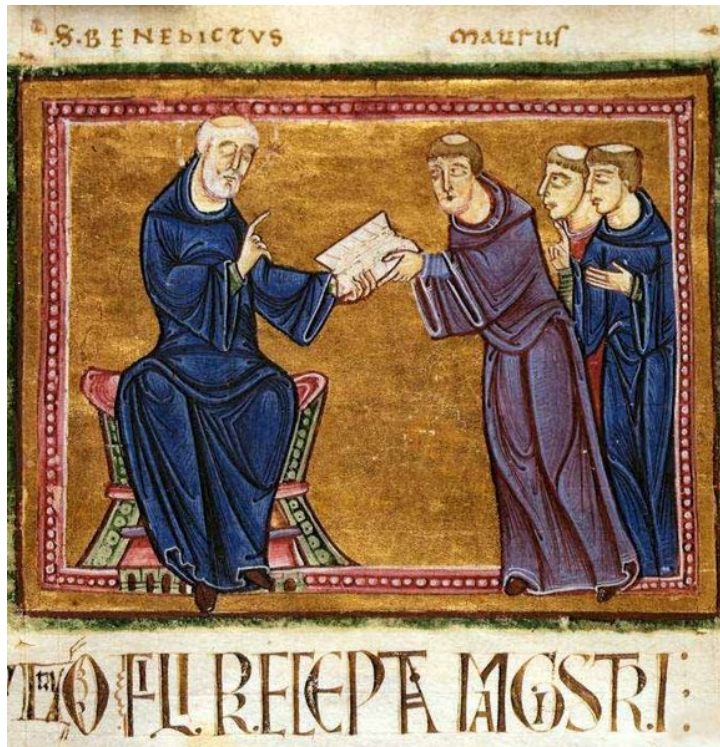 .S. BENEDICTVS mauruſ
O FILI RECEPTA MAGISTRI: